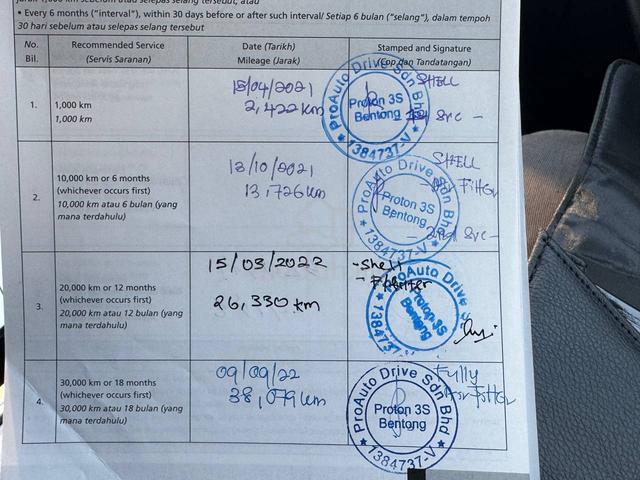 • Every 6 months ("interval"), within 30 days before or after such interval/ Setiap 6 bulan ("selang"), dalam tempoh
30 hari sebelum atau selepas selang tersebut
No.
Bil.
Recommended Service
(Servis Saranan)
Date (Tarikh)
Mileage (Jarak)
Stamped and Signature
(Cop dan Tandatangan)
1.
1,000 km
1,000 km
18/04/2021
2,422 km
SHELL
Src -
ProAuto Drive Sdn Bhd
Proton 3S
Bentong
★ 1384737-V ★
2.
10,000 km or 6 months
(whichever occurs first)
10,000 km atau 6 bulan (yang
mana terdahulu)
13/10/2021
13,726 km
SHELL
Src -
ProAuto Drive Sdn Bhd
Proton 3S
Bentong
★ 1384737-V ★
3.
20,000 km or 12 months
(whichever occurs first)
20,000 km atau 12 bulan (yang
mana terdahulu)
15/03/2022
26,330 km
- Shell
ProAuto Drive
Proton 3S
Bentong
★ 1384737
4.
30,000 km or 18 months
(whichever occurs first)
30,000 km atau 18 bulan (yang
mana terdahulu)
09/09/22
38,079 km
Fully
ProAuto Drive Sdn Bhd
Proton 3S
Bentong
★ 1384737-V ★